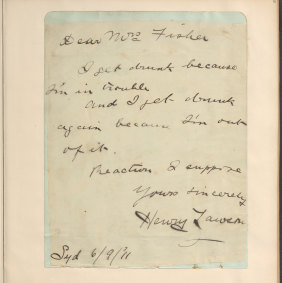 Dear Mrs Fisher
I get drunk because
I'm in trouble
and I get drunk
again because I'm out
of it.
Reaction I suppose
Yours sincerely
Henry Lawson
Syd 6/9/11